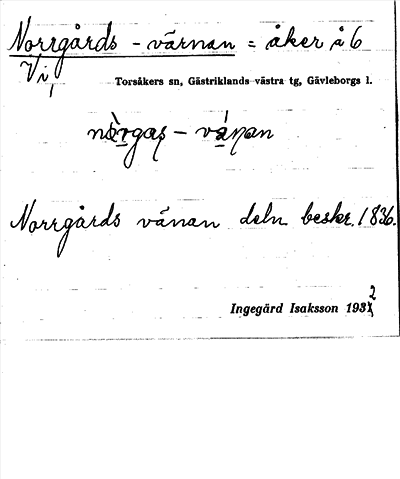 Norrgårds - värnan = åker å 6
Vi,
Torsåkers sn, Gästriklands västra tg, Gävleborgs l.
Norrgårds vänan deln beskr. 1836.
Ingegärd Isaksson 1932